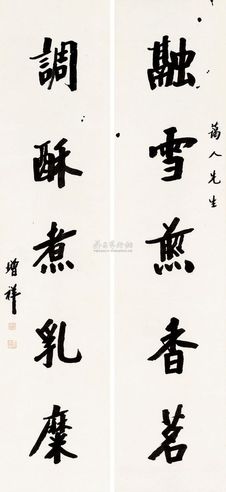 萬人先生
融雪煎香茗
調酥煮乳糜
增祥